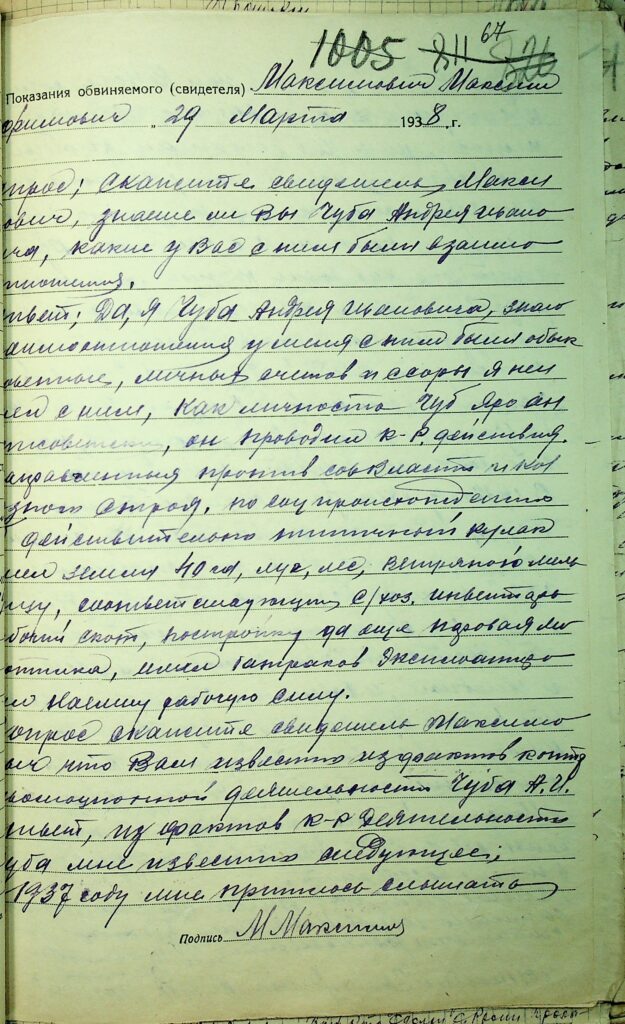 1005 811 67 326
Показания обвиняемого (свидетеля) Максимович Максим
фимович „ 29 Марта 1938 г.
прос; скажите свидетель Макси
ович, знаете ли Вы Чуба Андрея Ивано
ча, какие у Вас с ним были взаимо
тношения.
твет; Да, я Чуба Андрея Ивановича, знаю
аимоотношения у меня с ним были обык
овенные, личных счетов и ссоры я не и
ел с ним, как личность Чуб яро ан
тисоветский, он проводил к-р. действия.
аправленныя против соввласти и кол
зного строя, по соц происхождению
действительно типичный кулак
мел земли 40 га, луг, лес, ветряною мель
ицу, соответствующий с/хоз. инвентарь
бочий скот, постройку да еще паровая мо
отилка, имел батраков эксплоатиро
ал наемную рабочую силу.
опрос скажите свидетель Максимо
вич что Вам известно из фактов контр
волюционной деятельности Чуба А.И.
твет, из фактов к-р деятельности
уба мне известно следующее;
1937 году мне пришлось слышать
Подпись М Максимов